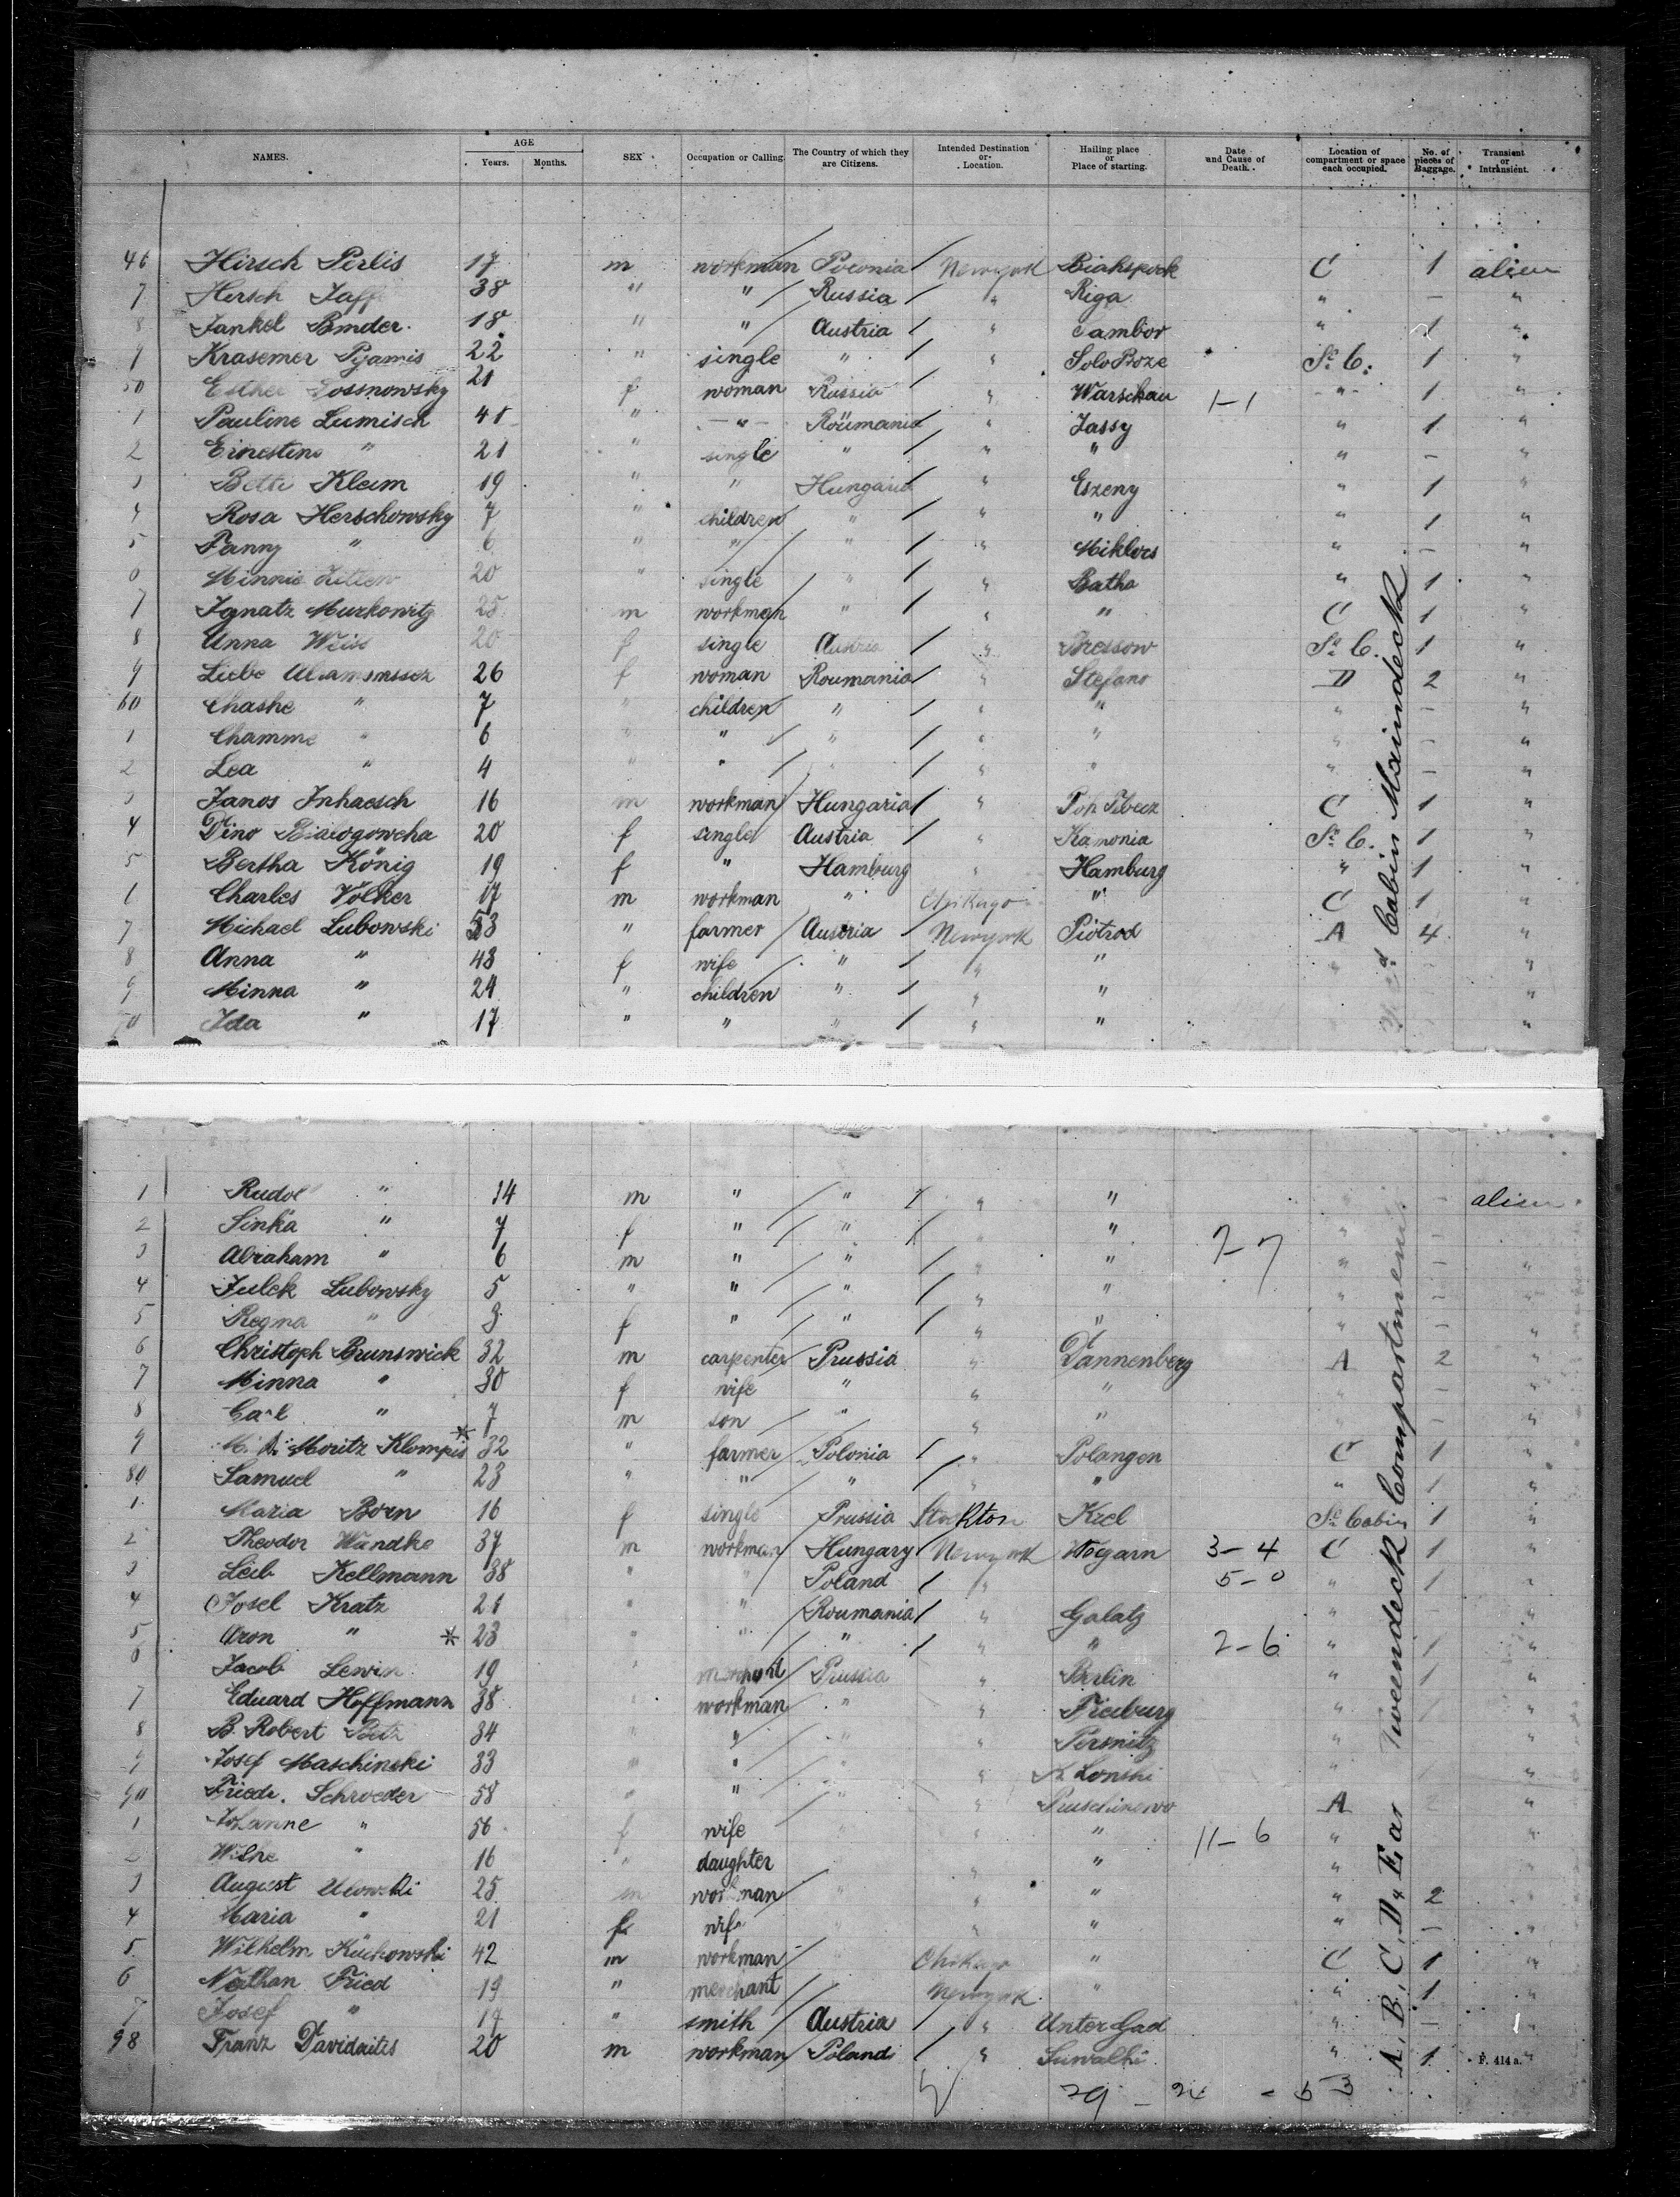 NAMES. AGE Years. Months. SEX Occupation or Calling. The Country of which they are Citizens. Intended Destination or Location. Hailing place or Place of starting. Date and Cause of Death. Location of compartment or space each occupied. No. of pieces of Baggage. Transient or Intransient.
46 Hirsch Perlis 17 m workman Polonia Newyork C 1 alien
7 Hersch Jaff 38 " " Russia " Riga " – "
8 Jankel Binder 18 " " Austria " Sambor " 1 "
9 Krasemer Pyamis 22 " single " " Solo Boze St. C. 1 "
50 Esther Sosnowsky 21 f woman Russia " Warschau 1–1 " 1 "
1 Pauline Lumisch 45 " " Roumania " Jassy " 1 "
2 Ernestine " 21 " single " " " " – "
3 Betti Kleim 19 " " Hungaria " Eszeny " 1 "
4 Rosa Herschowsky 7 " children " " " " 1 "
5 Fanny " 6 " " " " Miklos " – "
6 Minnie 20 " single " " Batho " 1 "
7 Ignatz Murkowitz 25 m workman " " " C 1 "
8 Anna Weiss 20 f single Austria " Bressow St. C. 1 "
9 Liebe 26 f woman Roumania " Stefano D 2 "
60 Chashe " 7 " children " " " " – "
1 Chamme " 6 " " " " " " – "
2 Lea " 4 " " " " " " – "
3 Janos Inhaesch 16 m workman Hungaria " C 1 "
4 Dino Bialogowcha 20 f single Austria " Kamonia St. C. 1 "
5 Bertha König 19 f " Hamburg " Hamburg " 1 "
6 Charles Völker 17 m workman " Chikago " C 1 "
7 Michael Lubowski 53 " farmer Austria Newyork Piotrod A 4 "
8 Anna " 43 f wife " " " " – "
9 Minna " 24 " children " " " "
70 Ida " 17 " " " " " "
2nd Cabin Maindeck
1 Rudol " 14 m " " " " " – alien
2 Sinka " 7 f " " " " " – "
3 Abraham " 6 m " " " " 7–7 " – "
4 Julek Lubowsky 5 " " " " " " – "
5 Regina " 3 f " " " " " – "
6 Christoph Brunswick 32 m carpenter Prussia " Dannenberg A 2 "
7 Minna " 30 f wife " " " " – "
8 Carl " 7 m son " " " " – "
9 Moritz Klompis * 32 " farmer Polonia " Polangen C 1 "
80 Samuel " 23 " " " " " " 1 "
1 Maria Born 16 f single Prussia Stockton Krel St. Cabin 1 "
2 Theodor Wandke 37 m workman Hungary Newyork Wogarn 3–4 C 1 "
3 Leib Kellmann 38 " " Poland " 5–0 " 1 "
4 Josel Kratz 21 " " Roumania " Galatz " – "
5 Aron " * 23 " " " " " 2–6 " 1 "
6 Jacob Lewin 19 " merchant Prussia " Berlin " 1 "
7 Eduard Hoffmann 38 " workman " " Freiburg " 1 "
8 B. Robert Betz 34 " " " " Persnitz " "
9 Josef Maschinski 33 " " " " A. Lonski " "
90 Friedr. Schroeder 58 " " " " Puschinowo A 2 "
1 Johanne " 56 f wife " " " 11–6 " "
2 " 16 " daughter " " " "
3 August 25 m workman " " " " 2 "
4 Maria " 21 f wife " " " " – "
5 Wilhelm Kuchowski 42 m workman " Chikago " C 1 "
6 Nathan Fried 19 " merchant Newyork " " 1 "
7 Josef " 17 " smith Austria " Unter Gad " – "
98 Franz Davidaitis 20 m workman Poland " Suwalki " 1 "
F. 414 a.
29 – 24 – 53
A, B, C, D, & E ar Tweendeck Compartment